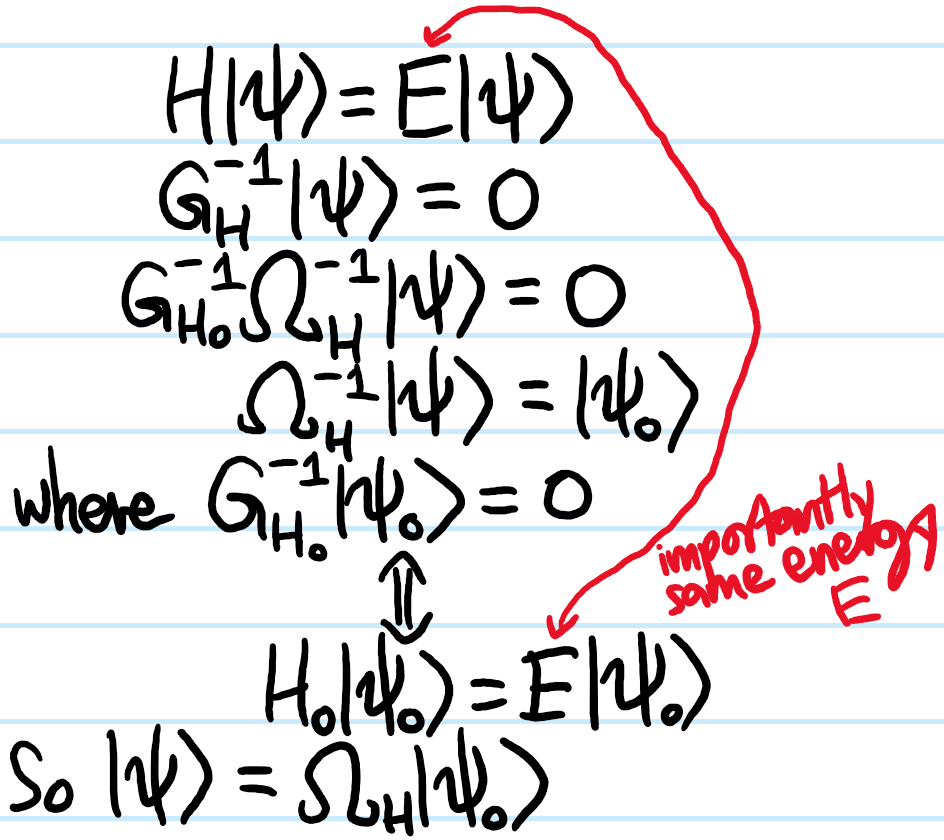 H|ψ⟩ = E|ψ⟩
G_H^{-1}|ψ⟩ = 0
G_{H_0}^{-1}Ω_H^{-1}|ψ⟩ = 0
Ω_H^{-1}|ψ⟩ = |ψ_0⟩
where G_{H_0}^{-1}|ψ_0⟩ = 0
importantly
same energy
E
⇕
H_0|ψ_0⟩ = E|ψ_0⟩
So |ψ⟩ = Ω_H|ψ_0⟩